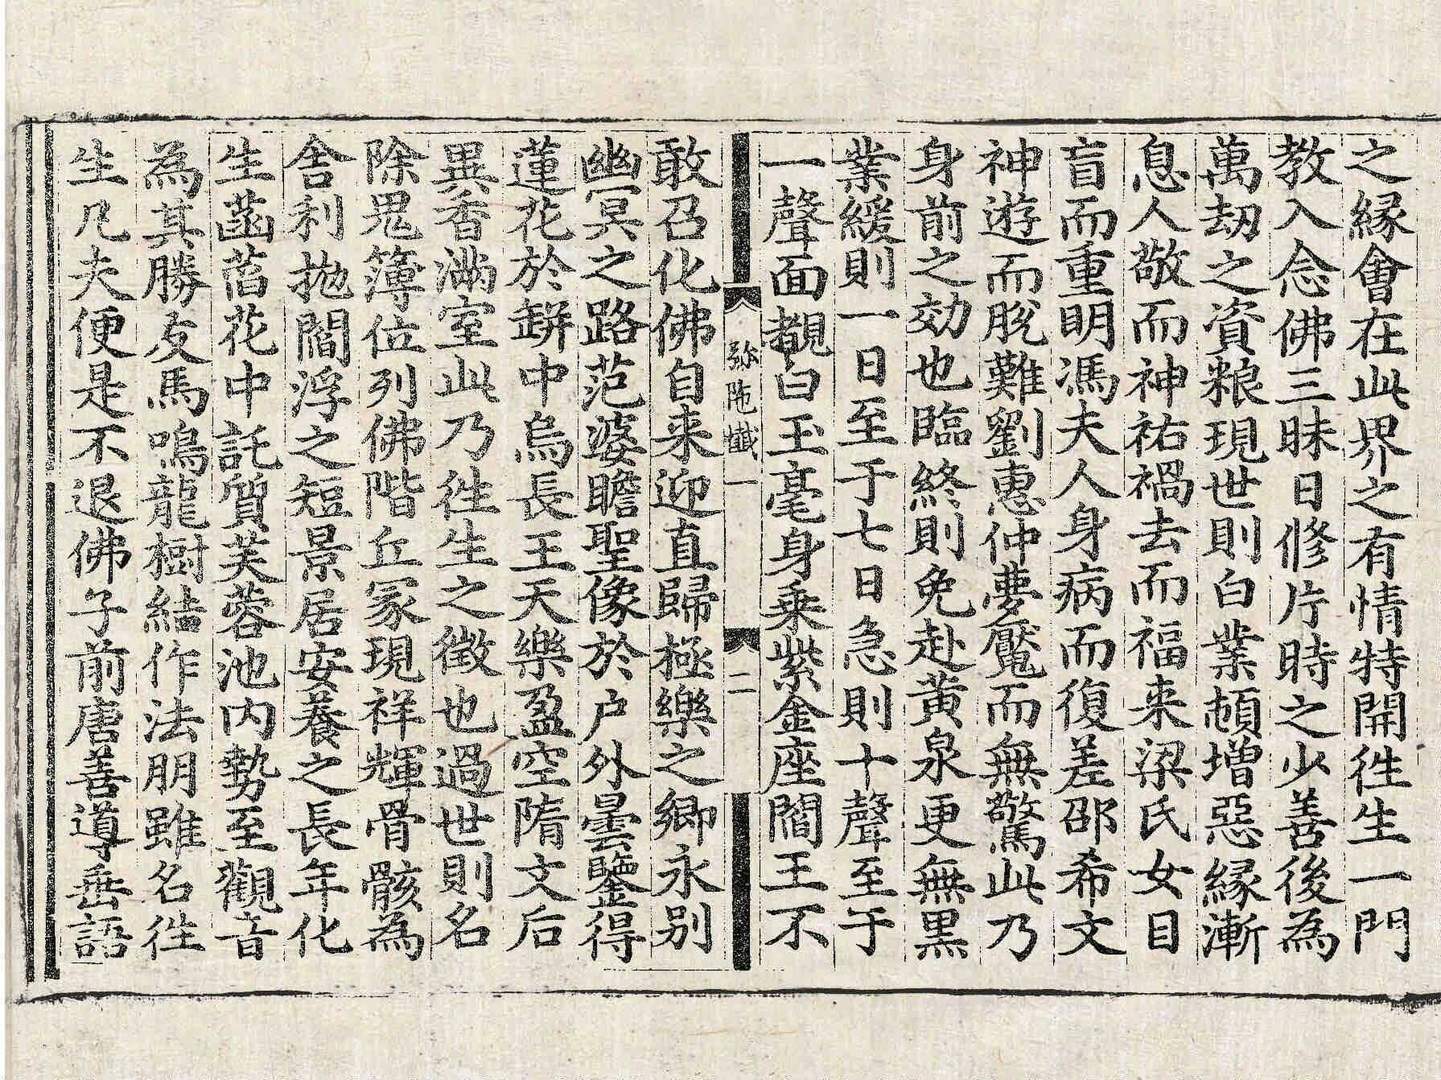 之縁會在此界之有情特開徃生一門
教入念佛三昧日修片時之少善後為
萬劫之資粮現世則白業頓增惡縁漸
息人敬而神祐禍去而福来梁氏女目
盲而重明馮夫人身病而復差邵希文
神遊而脫難劉惠仲夢魘而無驚此乃
身前之効也臨終則免赴黃泉更無黑
業緩則一日至于七日急則十聲至于
一聲面覩白玉毫身乗紫金座閻王不
弥陁懺一 二
敢召化佛自来迎直歸極樂之卿永别
幽冥之路范婆瞻聖像於户外曇鑒得
蓮花於缾中烏長王天樂盈空隋文后
異香滿室此乃徃生之徵也過世則名
除鬼簿位列佛階丘冢現祥輝骨骸為
舍利拋閻浮之短景居安養之長年化
生菡萏花中託質芙蓉池内勢至觀音
為其勝友馬鳴龍樹結作法朋雖名徃
生凡夫便是不退佛子前唐善導垂語